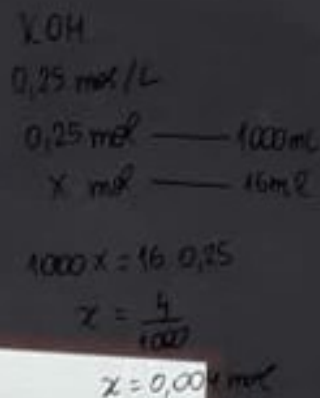 KOH
0,25 mol/L
0,25 mol —— 1000mL
x mol —— 16mL
1000x = 16 0,25
x = 4/1000
x = 0,004 mol